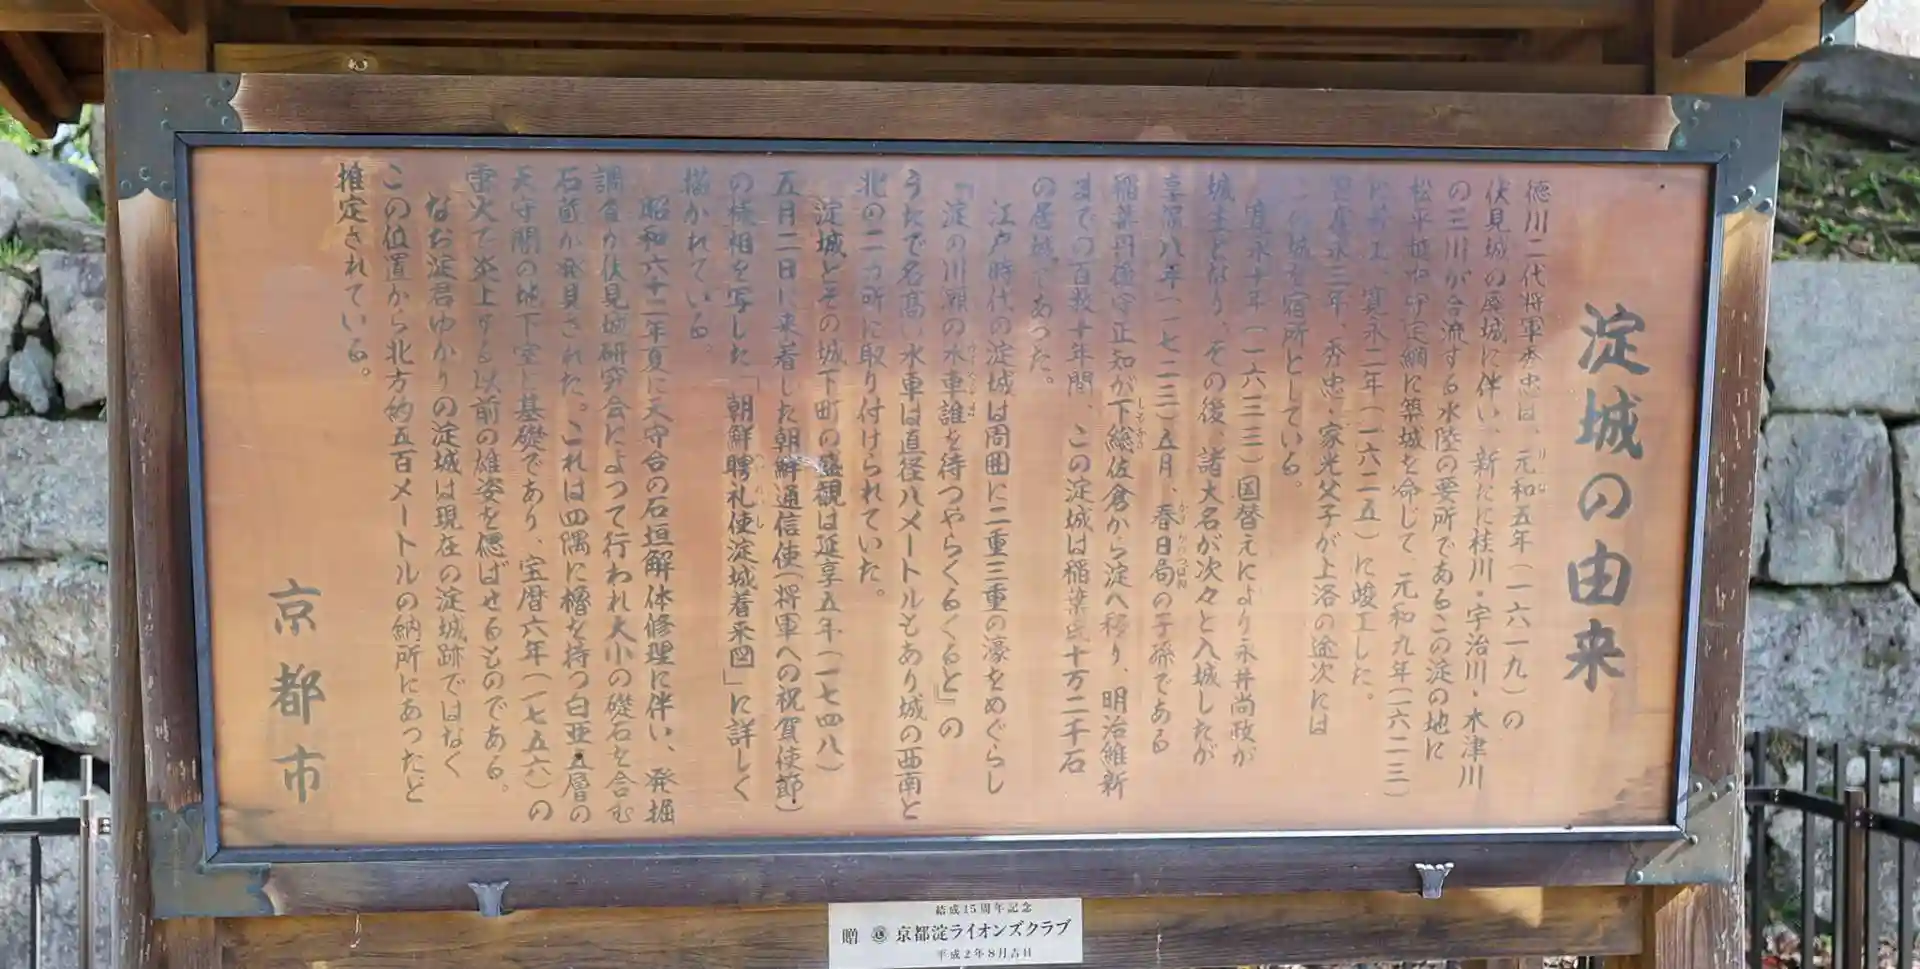 淀城の由来
徳川二代将軍秀忠は、元和五年(一六一九)の
伏見城の廃城に伴い、新たに桂川・宇治川・木津川
の三川が合流する水陸の要所であるこの淀の地に
松平越中守定綱に築城を命じて、元和九年(一六二三)
に着工、寛永二年(一六二五)に竣工した。
寛永三年、秀忠・家光父子が上洛の途次には
この城を宿所としている。
寛永十年(一六三三)国替えにより永井尚政が
城主となり、その後、諸大名が次々と入城したが
享保八年(一七二三)五月、春日局の子孫である
稲葉丹後守正知が下総佐倉から淀へ移り、明治維新
までの百数十年間、この淀城は稲葉氏十万二千石
の居城であった。
江戸時代の淀城は周囲に二重三重の濠をめぐらし
『淀の川瀬の水車誰を待つやらくるくると』の
うたで名高い水車は直径八メートルもあり城の西南と
北の二カ所に取り付けられていた。
淀城とその城下町の盛観は延享五年(一七四八)
五月二日に来着した朝鮮通信使(将軍への祝賀使節)
の様相を写した「朝鮮聘礼使淀城着来図」に詳しく
描かれている。
昭和六十二年夏に天守台の石垣解体修理に伴い、発掘
調査が伏見城研究会によって行われ大小の礎石を含む
石蔵が発見された。これは四隅に櫓を持つ白亜五層の
天守閣の地下室と基礎であり、宝暦六年(一七五六)の
雷火で炎上する以前の雄姿を偲ばせるものである。
なお淀君ゆかりの淀城は現在の淀城跡ではなく
この位置から北方約五百メートルの納所にあったと
推定されている。
京都市
結成15周年記念
贈 京都淀ライオンズクラブ
平成2年8月吉日